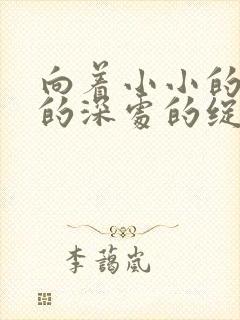 向着小小的
的深处的绽
李蔼岚